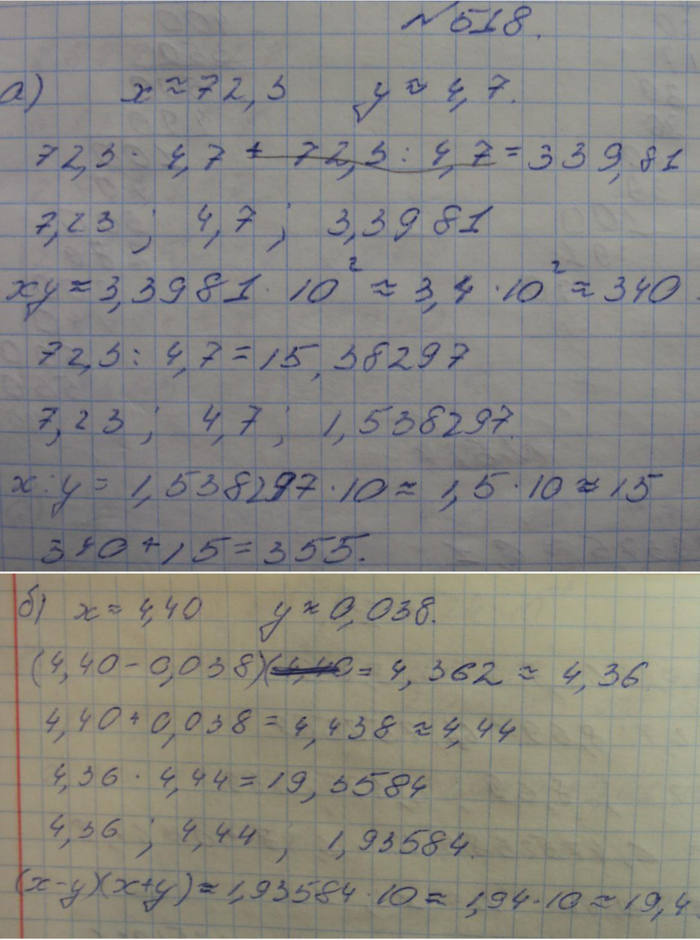 №518.
а) x≈72,3 y≈4,7.
72,3 · 4,7 + 72,3 : 4,7 = 339,81
7,23 ; 4,7 ; 3,3981
xy≈3,3981 · 10² ≈ 3,4 · 10² ≈ 340
72,3 : 4,7 = 15,38297
7,23 ; 4,7 ; 1,538297.
x:y = 1,538297 · 10 ≈ 1,5 · 10 ≈ 15
340 + 15 = 355.
б) x≈4,40 y≈0,038.
(4,40 - 0,038)( = 4,362 ≈ 4,36
4,40 + 0,038 = 4,438 ≈ 4,44
4,36 · 4,44 = 19,3584
4,36 ; 4,44 ; 1,93584.
(x-y)(x+y) ≈ 1,93584 · 10 ≈ 1,94 · 10 ≈ 19,4